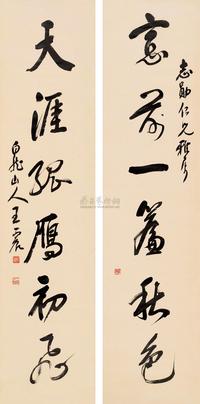 志勛仁兄雅屬
窓前一簾秋色
天涯孤雁初飛
白龍山人王震